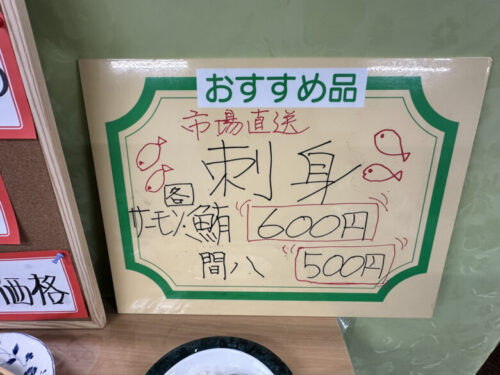 おすすめ品
市場直送
刺身
各
サーモン・鮪 600円
間八 500円
価格